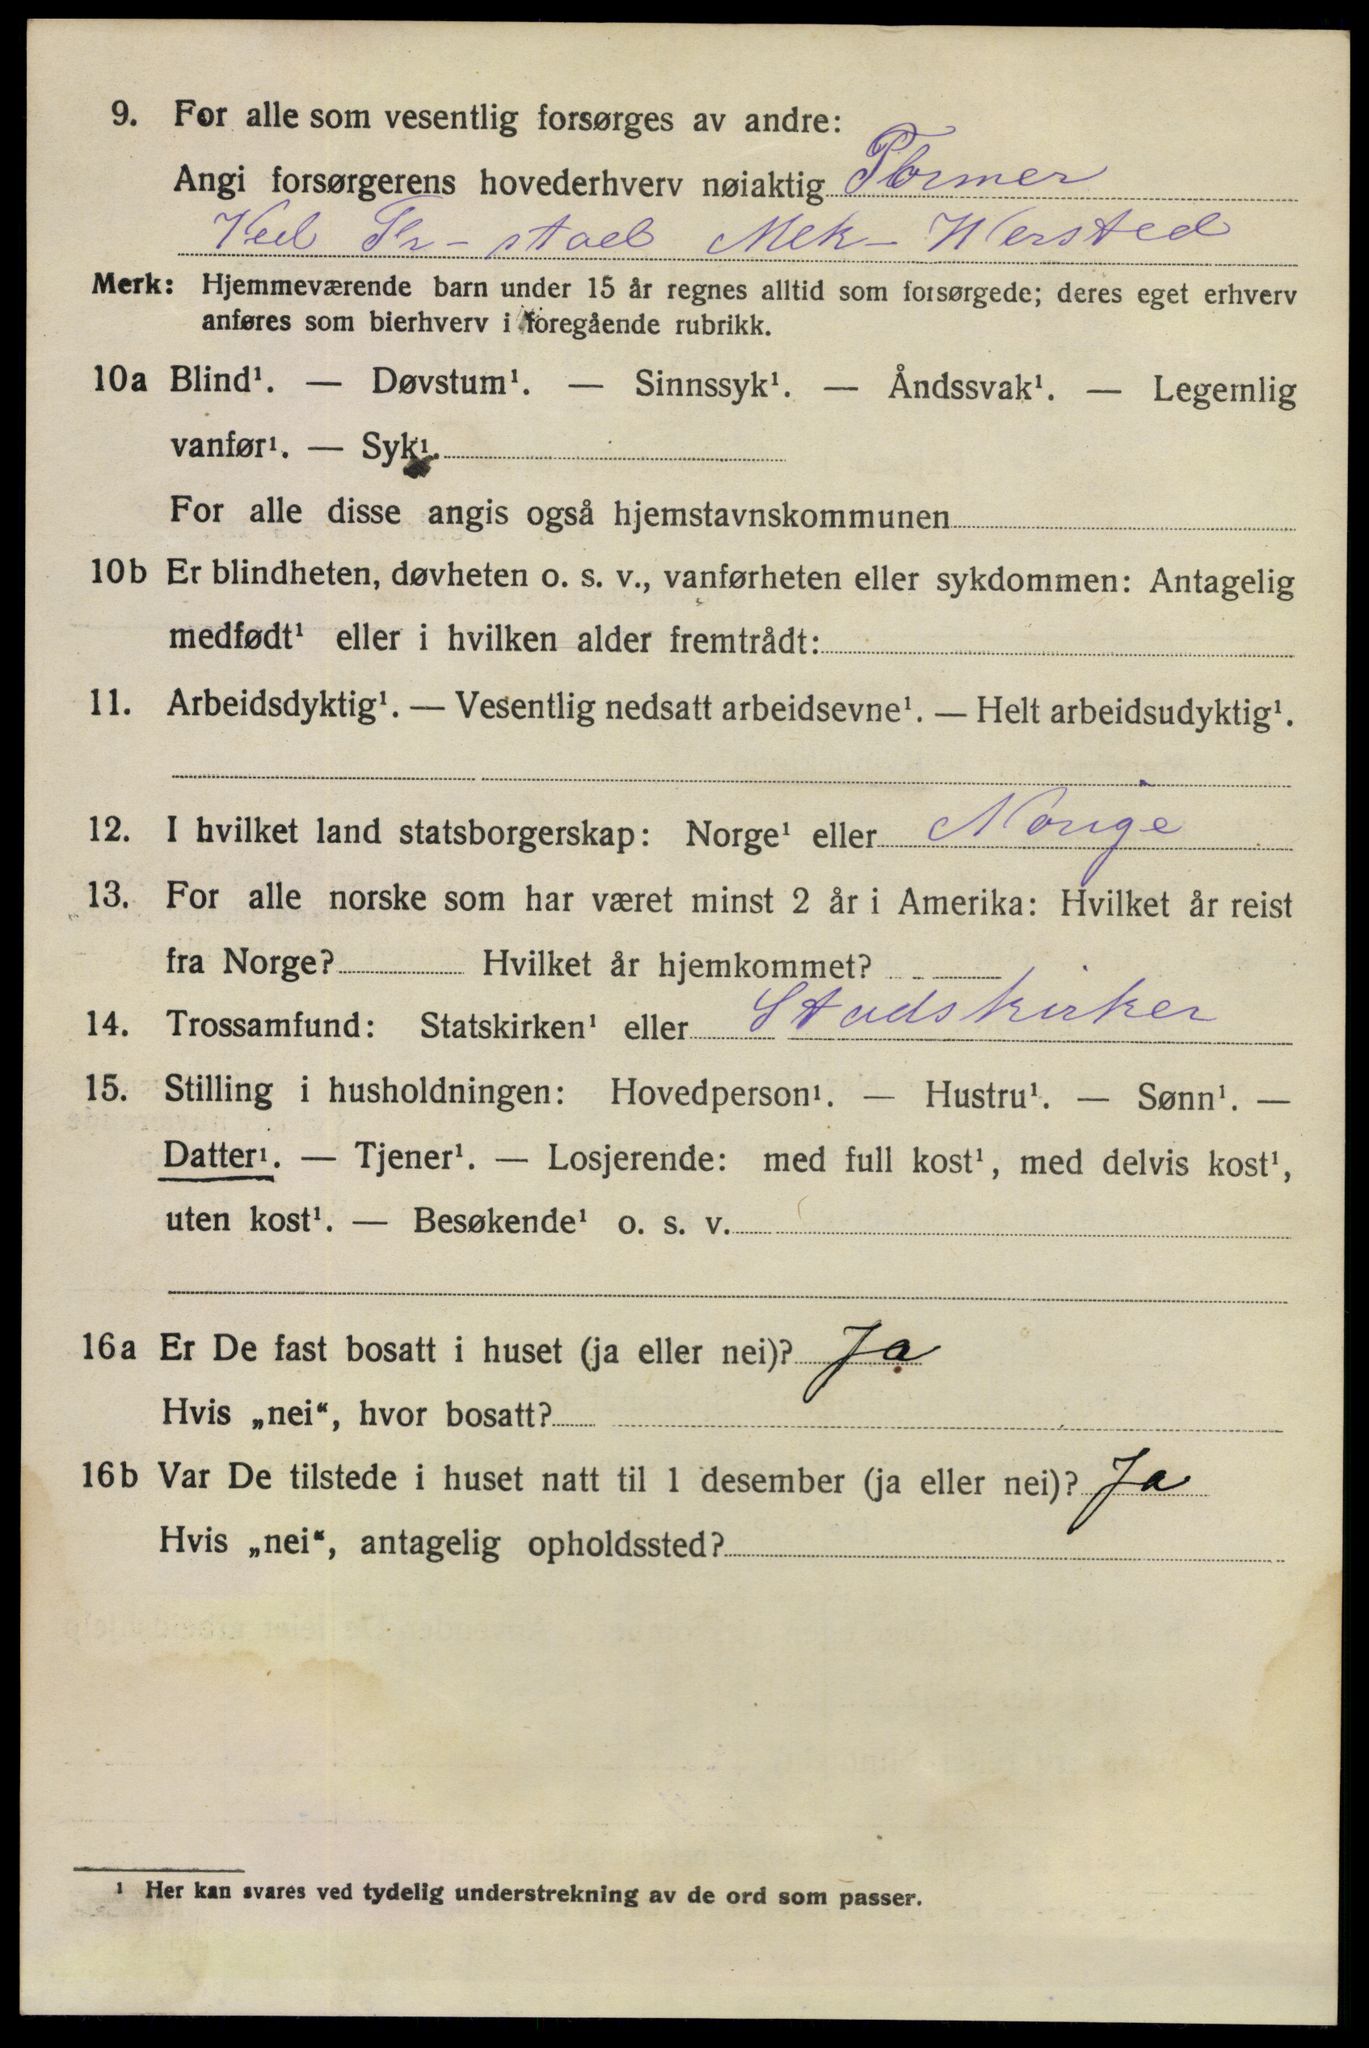 9. For alle som vesentlig forsørges av andre:
Angi forsørgerens hovederhverv nøiaktig Former
Ved Fr-stad Mek- Wersted
Merk: Hjemmeværende barn under 15 år regnes alltid som forsørgede; deres eget erhverv
anføres som bierhverv i foregående rubrikk.
10a Blind¹. — Døvstum¹. — Sinnssyk¹. — Åndssvak¹. — Legemlig
vanfør¹. — Syk¹.
For alle disse angis også hjemstavnskommunen
10b Er blindheten, døvheten o. s. v., vanførheten eller sykdommen: Antagelig
medfødt¹ eller i hvilken alder fremtrådt:
11. Arbeidsdyktig¹. — Vesentlig nedsatt arbeidsevne¹. — Helt arbeidsudyktig¹.
12. I hvilket land statsborgerskap: Norge¹ eller Norige
13. For alle norske som har været minst 2 år i Amerika: Hvilket år reist
fra Norge? Hvilket år hjemkommet?
14. Trossamfund: Statskirken¹ eller Stadskirker
15. Stilling i husholdningen: Hovedperson¹. — Hustru¹. — Sønn¹. —
Datter¹. — Tjener¹. — Losjerende: med full kost¹, med delvis kost¹,
uten kost¹. — Besøkende¹ o. s. v.
16a Er De fast bosatt i huset (ja eller nei)? Ja
Hvis „nei“, hvor bosatt?
16b Var De tilstede i huset natt til 1 desember (ja eller nei)? Ja
Hvis „nei“, antagelig opholdssted?
¹ Her kan svares ved tydelig understrekning av de ord som passer.